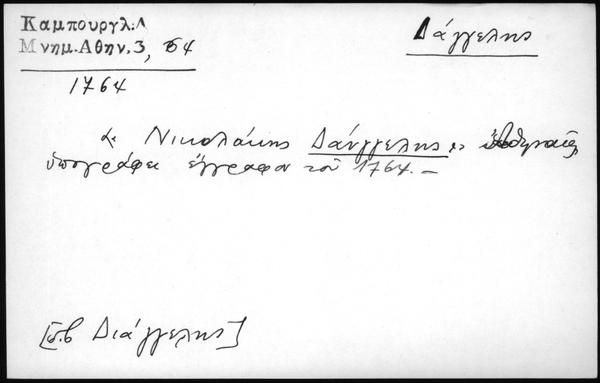 Καμπουργλ: Δ
Μνημ. Αθην. 3, 54
1764
Δάγγελης
« Νικολάκης Δάνγγελης » Ἀθηναῖος
ὑπογράφει ἔγγραφον τοῦ 1764.–
[σ.β Διάγγελης]